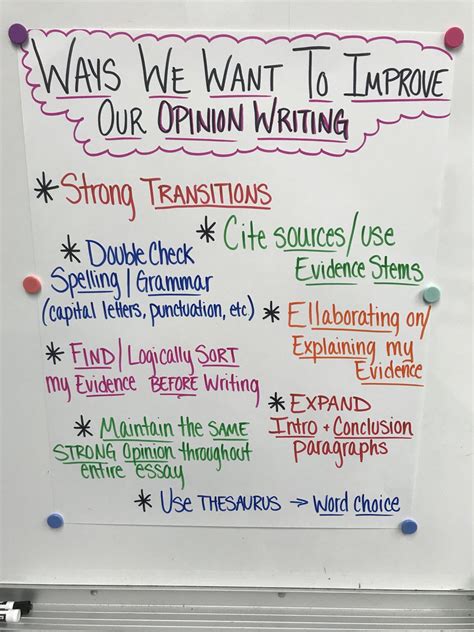 WAYS WE WANT TO IMPROVE
OUR OPINION WRITING
* Strong TRANSITIONS
* Cite sources/use
Evidence Stems
* Double Check
Spelling/Grammar
(capital letters, punctuation, etc)
* Ellaborating on/
Explaining my
Evidence
* FIND/Logically SORT
my Evidence BEFORE Writing
* EXPAND
Intro + Conclusion
paragraphs
* Maintain the SAME
STRONG Opinion throughout
entire essay
* Use THESAURUS → Word Choice